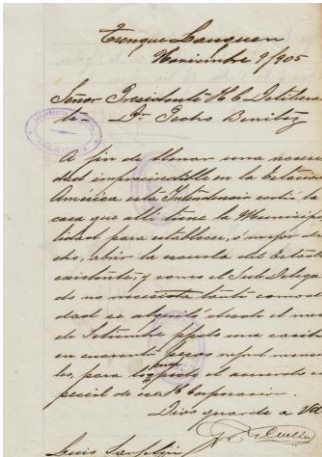 Trenque Lauquen
Noviembre 9/905
Señor Presidente H. C. Delibera
te Dr Pedro Benitez
A fin de llenar una neces
dad imprescindible en la Estacion
América esta Intendencia
casa que alli tiene la Municipa
lidad para establecer, ó mejor di
cho, abrir la escuela del Estado
existente; y como el Sub Delega
do no necesita tanta comod
dad se alquiló desde el mes
de Setiembre ppdo una casita
en cuarenta pesos m/n mensua
les, para
pecial de esa H. Corporacion.
Dios guarde a Vd
Luis